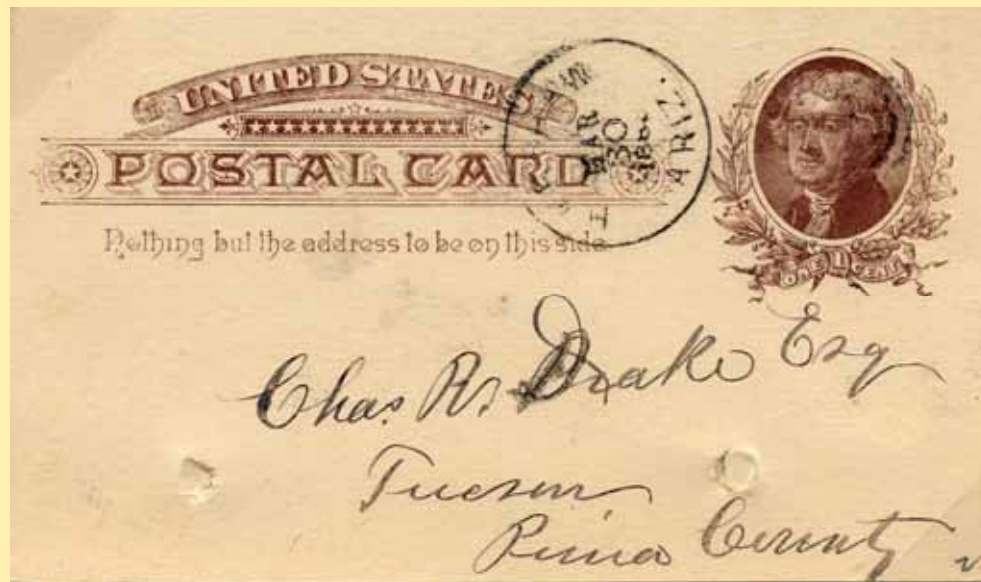 UNITED STATES
POSTAL CARD
Nothing but the address to be on this side
MAR
30
ARIZ.
ONE 1 CENT
Chas. R. Drake Esq
Tucson
Pima County